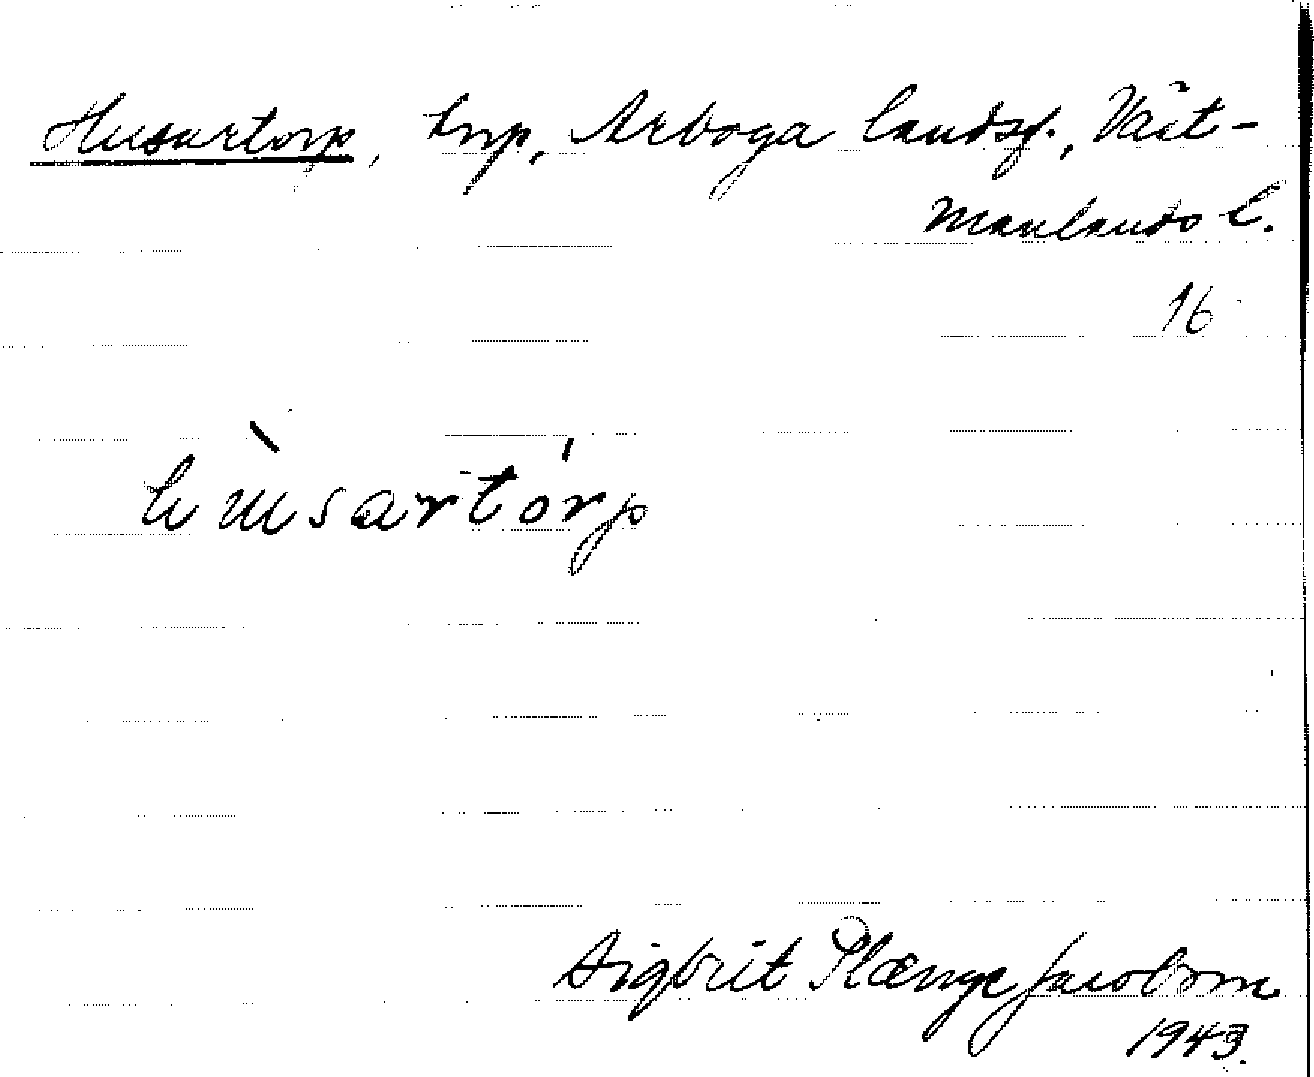 Husartorp, torp, Arboga landsf., Väst-
manlands l.
16
hùsartórp
Sigbrit Plænge Jacobson
1943.